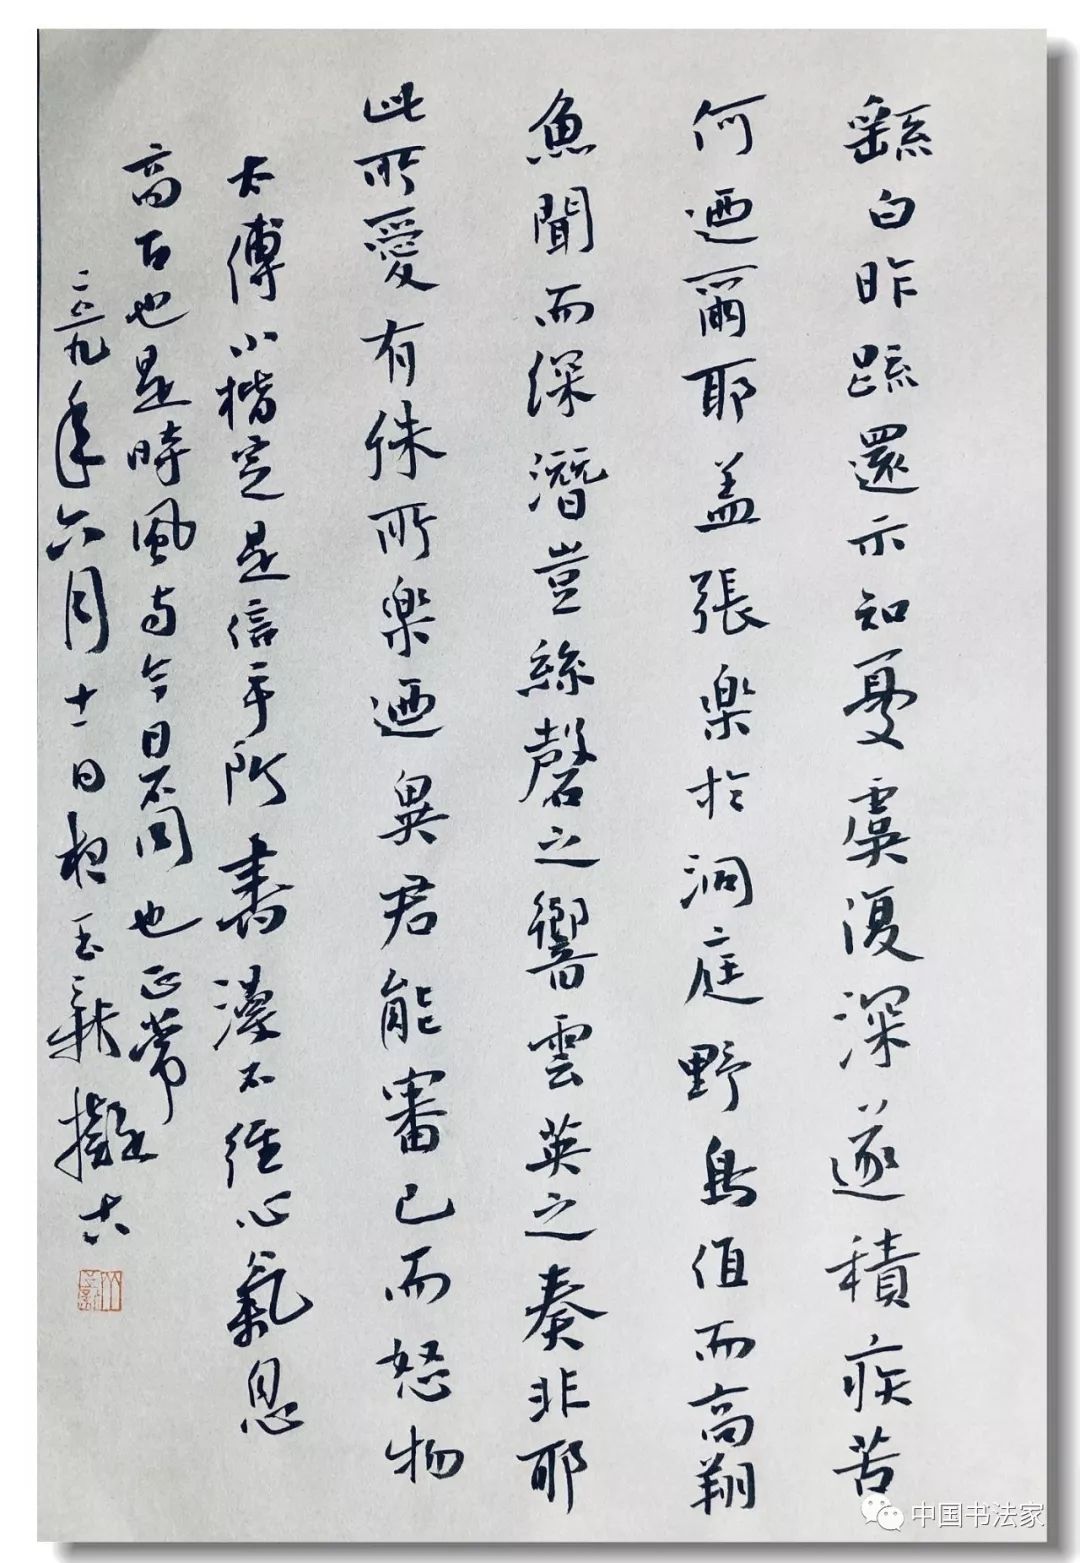 繇白昨疏還示知憂虞復深遂積疾苦
何迺爾耶盖張樂於洞庭野鳥值而高翔
魚聞而深潛豈絲磬之響雲英之奏非耶
此所愛有殊所樂迺異君能審己而恕物
太傅小楷定是信手所書漫不經心氣息
高古也是時風與今日不同也正常
二〇一九年六月十一日根玉新擬古
中国书法家